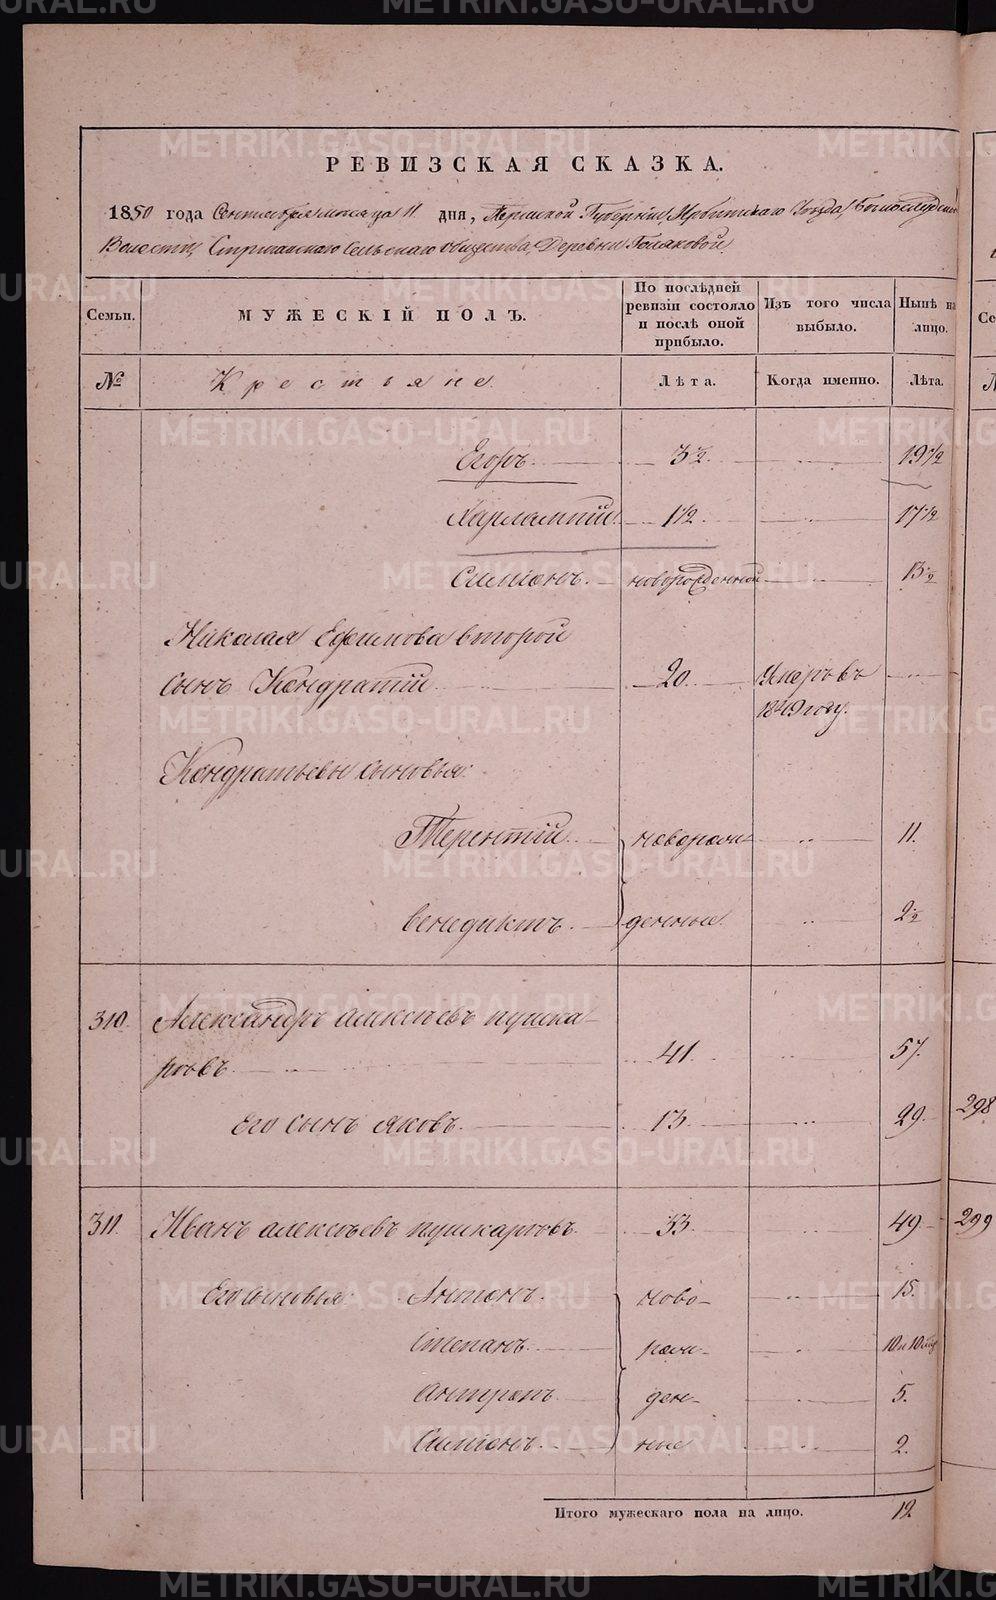 РЕВИЗСКАЯ СКАЗКА.
1850 года Сентября месяца 11 дня, Пермской Губернии, Ирбитскаго Уезда
Волости, Стриганскаго Сельскаго общества, Деревни
Семьи. МУЖЕСКІЙ ПОЛЪ. По послѣдней ревизіи состояло и послѣ оной прибыло. Изъ того числа выбыло. Нынѣ на лицо.
№ Крестьяне. Лѣта. Когда именно. Лѣта.
Егоръ 3½ 19½
Харлампій 1½ 17½
Симіонъ новорожденной 13½
Николая Ефимова второй
сынъ Кондратій 20. Умеръ въ
1849 году.
Кондратьевы сыновья:
Терентій новорож- 11.
Венедиктъ денные 2½
310. Александръ Алексѣевъ Пушка-
ровъ 41. 57.
Его сынъ Яковъ 13. 29. 298
311. Иванъ Алексѣевъ Пушкаровъ 33. 49. 299
Его сыновья: Антонъ ново- 15.
Степанъ рож- 10 и 10 мѣс
Антропъ ден- 5.
Симіонъ ные 2.
Итого мужескаго пола на лицо. 12
METRIKI.GASO-URAL.RU